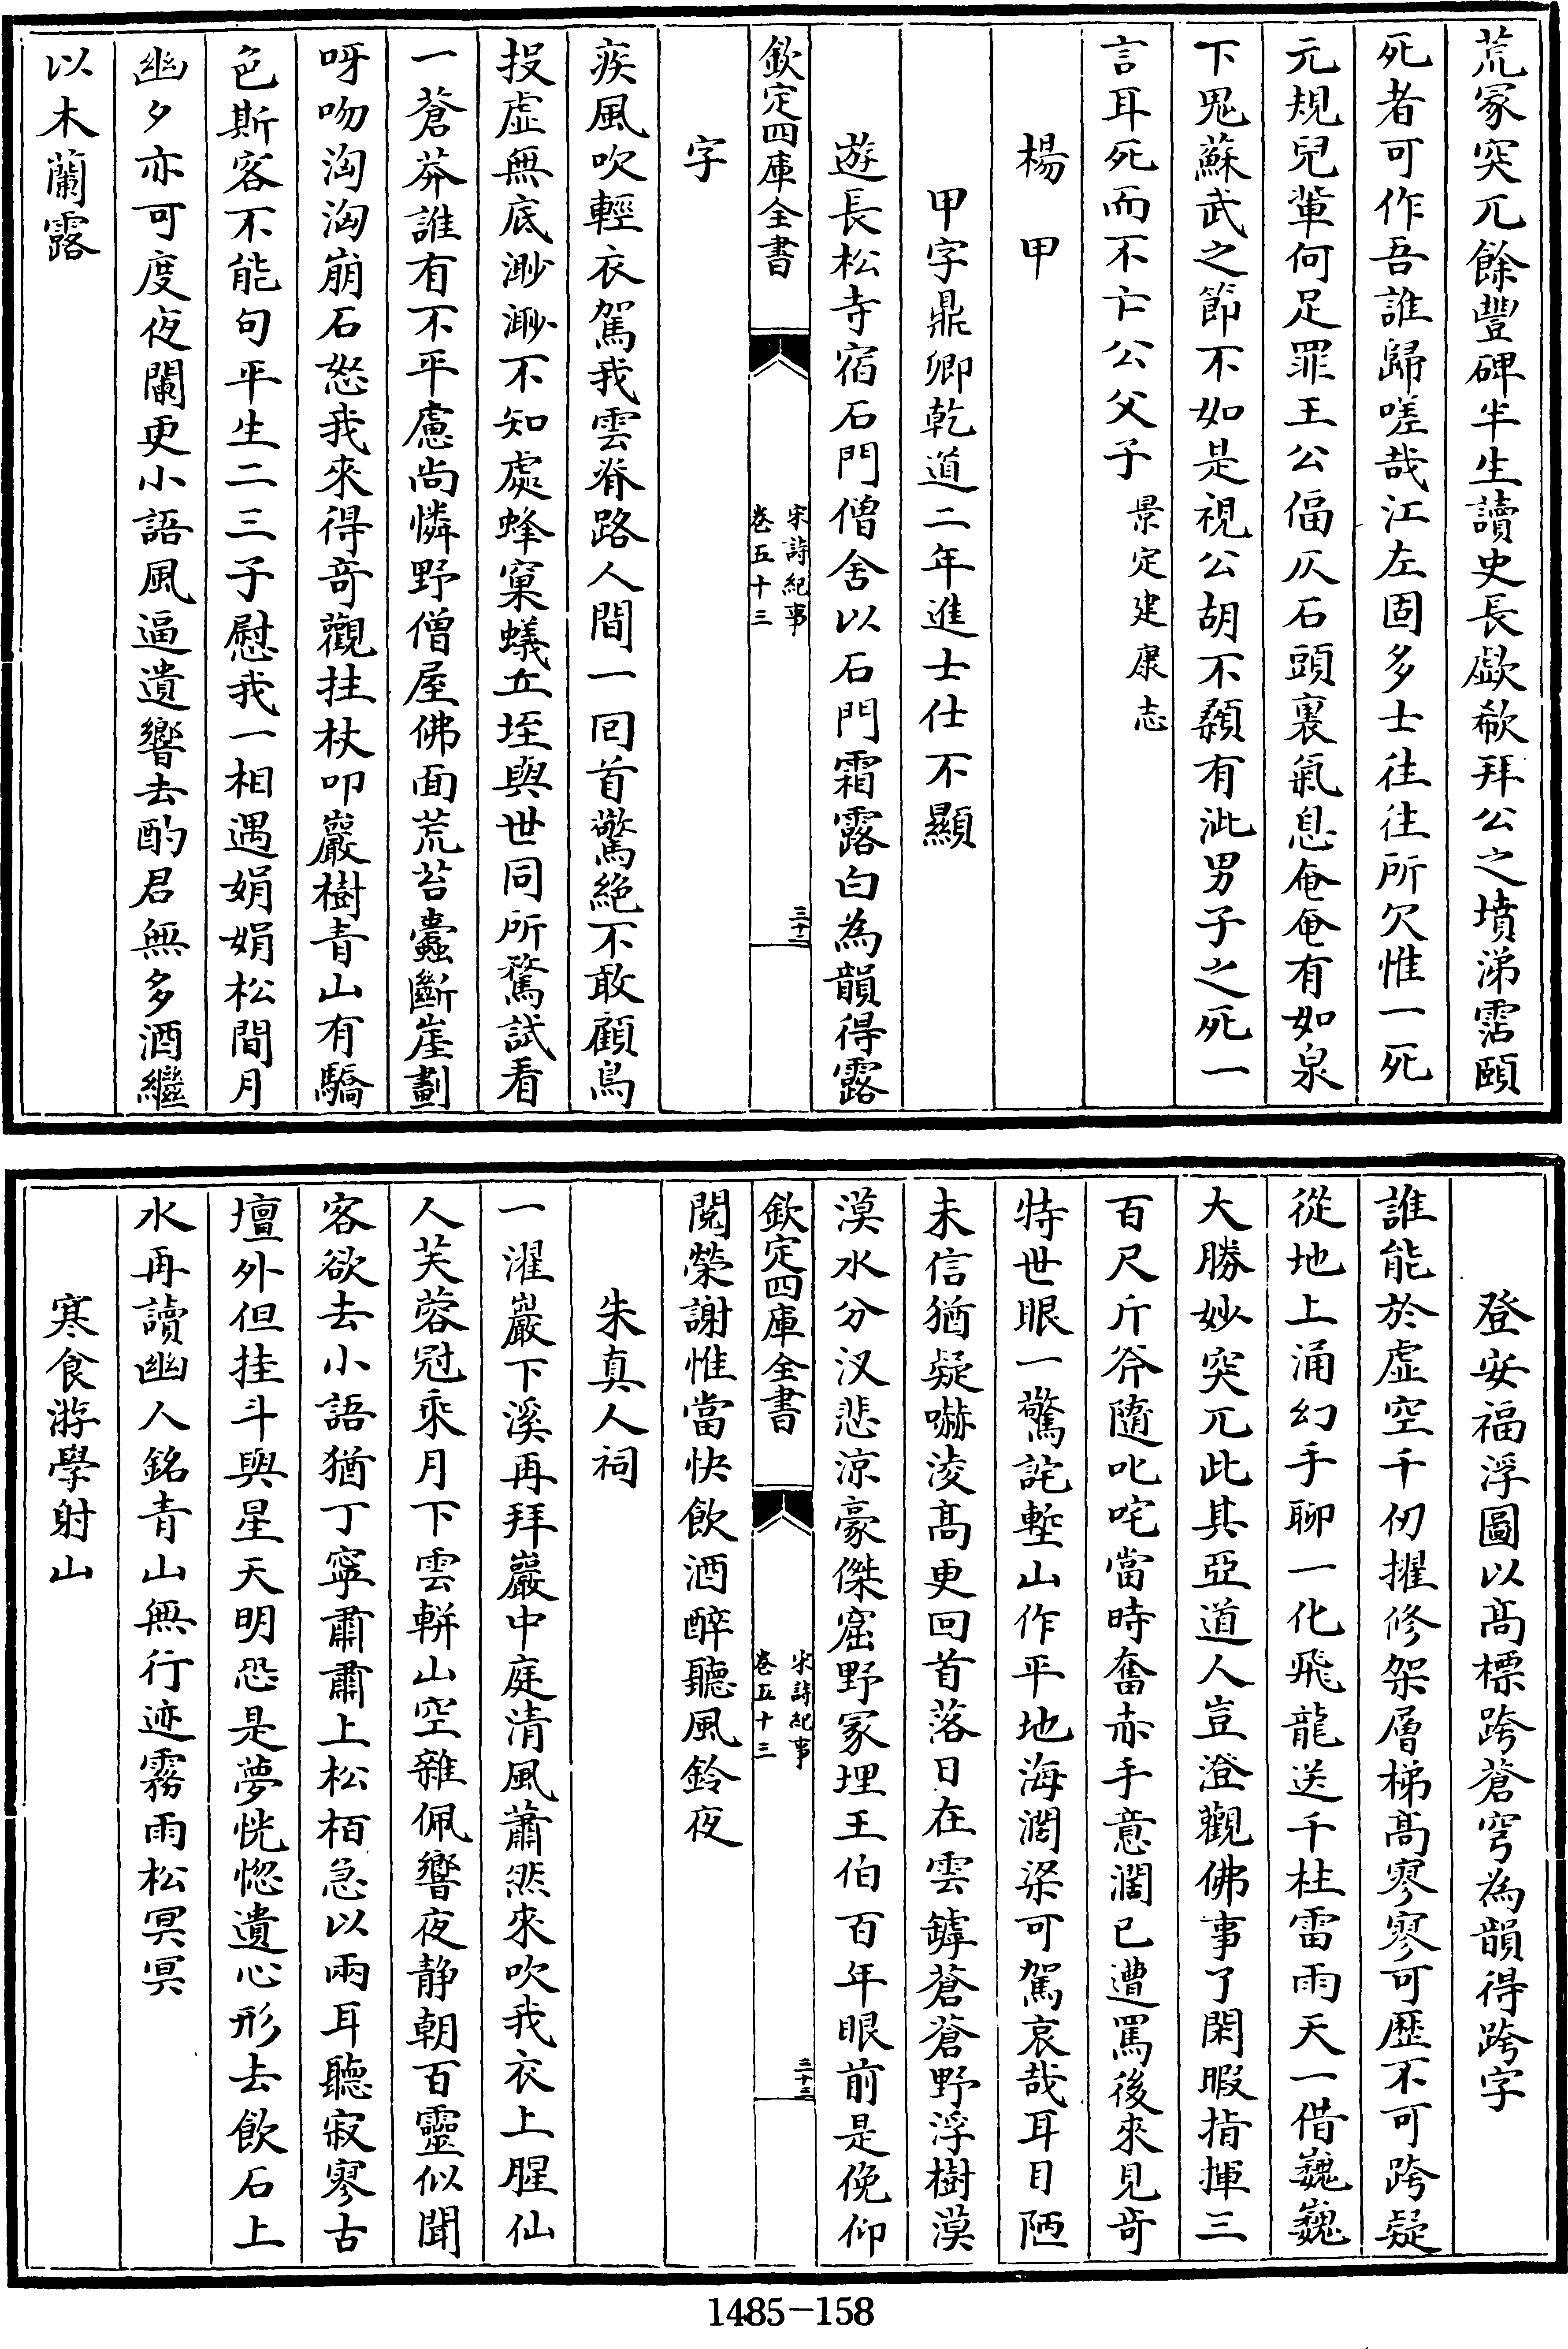 荒冢突兀餘豐碑半生讀史長歔欷拜公之墳涕霑頤
死者可作吾誰歸嗟哉江左固多士往往所欠惟一死
元規兒輩何足罪王公偪仄石頭裏氣息奄奄有如泉
下鬼蘇武之節不如是視公胡不顙有泚男子之死一
言耳死而不亡公父子景定建康志
楊甲
甲字鼎卿乾道二年進士仕不顯
遊長松寺宿石門僧舍以石門霜露白為韻得露
欽定四庫全書
宋詩紀事
卷五十三
三十二
字
疾風吹輕衣駕我雲脊路人間一回首驚絶不敢顧鳥
投虛無底渺渺不知處蜂窠蟻丘垤與世同所騖試看
一蒼莽誰有不平慮尚憐野僧屋佛面荒苔蠹斷崖劃
呀吻洶洶崩石怒我來得竒觀拄杖叩巖樹青山有驕
色斯客不能句平生二三子慰我一相遇娟娟松間月
幽夕亦可度夜闌更小語風逼遺響去酌君無多酒繼
以木蘭露
登安福浮圖以髙標跨蒼穹為韻得跨字
誰能於虛空千仞擢修架層梯髙寥寥可歷不可跨疑
從地上涌幻手聊一化飛龍送千柱雷雨天一借巍巍
大勝妙突兀此其亞道人豈澄觀佛事了閑暇指揮三
百尺斤斧隨叱咤當時奮赤手意濶已遭罵後來見竒
特世眼一驚詫塹山作平地海濶梁可駕哀哉耳目陋
未信猶疑嚇淩髙更回首落日在雲罅蒼蒼野浮樹漠
漠水分汊悲涼豪傑窟野冢埋王伯百年眼前是俛仰
欽定四庫全書
宋詩紀事
卷五十三
三十三
閱榮謝惟當快飲酒醉聽風鈴夜
朱真人祠
一濯巖下溪再拜巖中庭清風蕭然來吹我衣上腥仙
人芙蓉冠乘月下雲軿山空雜佩響夜静朝百靈似聞
客欲去小語猶丁寧肅肅上松栢急以兩耳聽寂寥古
壇外但挂斗與星天明恐是夢恍惚遺心形去飲石上
水再讀幽人銘青山無行迹霧雨松冥冥
寒食游學射山
1485-158